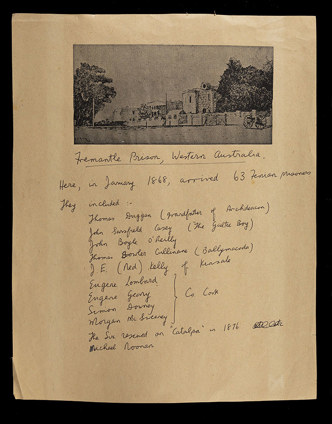 Fremantle Prison, Western Australia.
Here, in January 1868, arrived 63 Fenian prisoners
They included :-
Thomas Duggan (Grandfather of Archdeacon)
John Sarsfield Casey (The Galtee Boy)
John Boyle O'Reilly
Thomas Bowler Cullinane (Ballymacoda)
J.E. (Red) Kelly of Kinsale
Eugene Lombard
Eugene Geary
Simon Downey
Morgan McSweeney
Co Cork
The six rescued on "Catalpa" in 1876
Michael Noonan